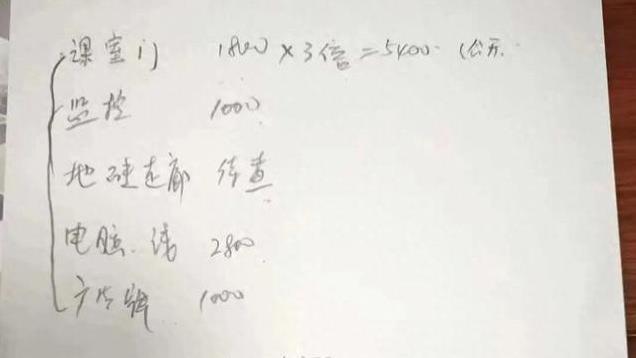 课室门 1800×3倍=5400 (公开
监控 1000
地砖走廊 待查
电脑、线 2800
广告牌 1000